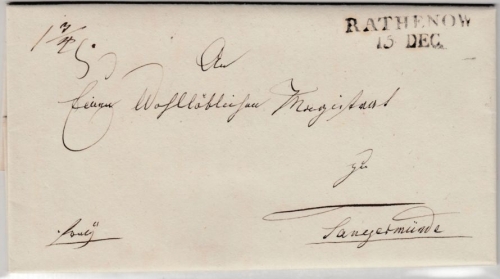 RATHENOW
15 DEC.
1 3/4
An
Einen Wohllöblichen Magistrat
zu
Tangermünde